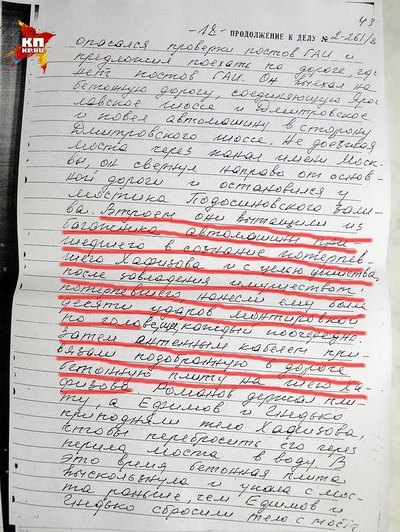 КП
KP.RU
43
-18- ПРОДОЛЖЕНИЕ К ДЕЛУ № 2-261/8
опасался проверки постов ГАИ и
предложил поехать по дороге, где
нет постов ГАИ. Он выехал на
бетонную дорогу, соединяющую Яро-
славское шоссе и Дмитровское
и повел автомашину в сторону
Дмитровского шоссе. Не доезжая
моста через канал имени Моск-
вы, он свернул направо от основ-
ной дороги и остановился у
мостика Подосиновского зали-
ва. Втроем они вытащили из
багажника автомашины при-
шедшего в сознание потерпев-
шего Хафизова и с целью убийства,
после завладения имуществом
потерпевшего нанесли ему более
десяти ударов монтировкой
по голове, каждый поочередно.
Затем антенным кабелем при-
вязали подобранную в дороге
бетонную плиту на шею Ха-
физова. Романов держал пли-
ту а Ефимов и Гнедько
приподняли тело Хафизова,
чтобы перебросить его через
перила моста в воду. В
это время бетонная плита
выскользнула и упала с мос-
та раньше, чем Ефимов и
Гнедько сбросили тело с моста